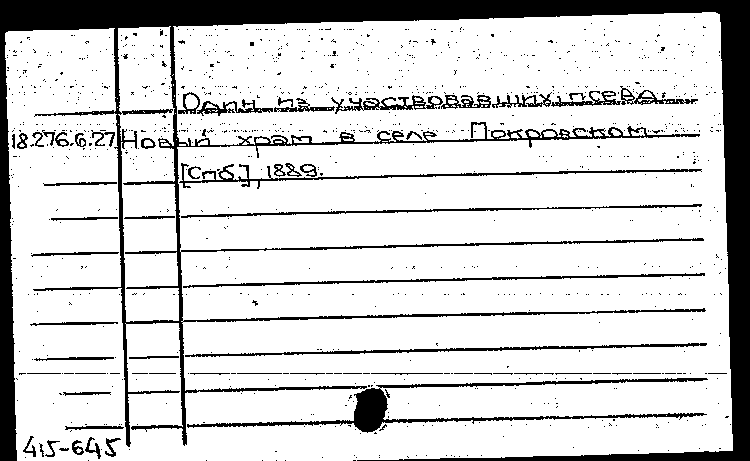 Один из участвовавших, псевд.
18.276.6.27 Новый храм в селе Покровском.
[Спб.], 1889.
415-645